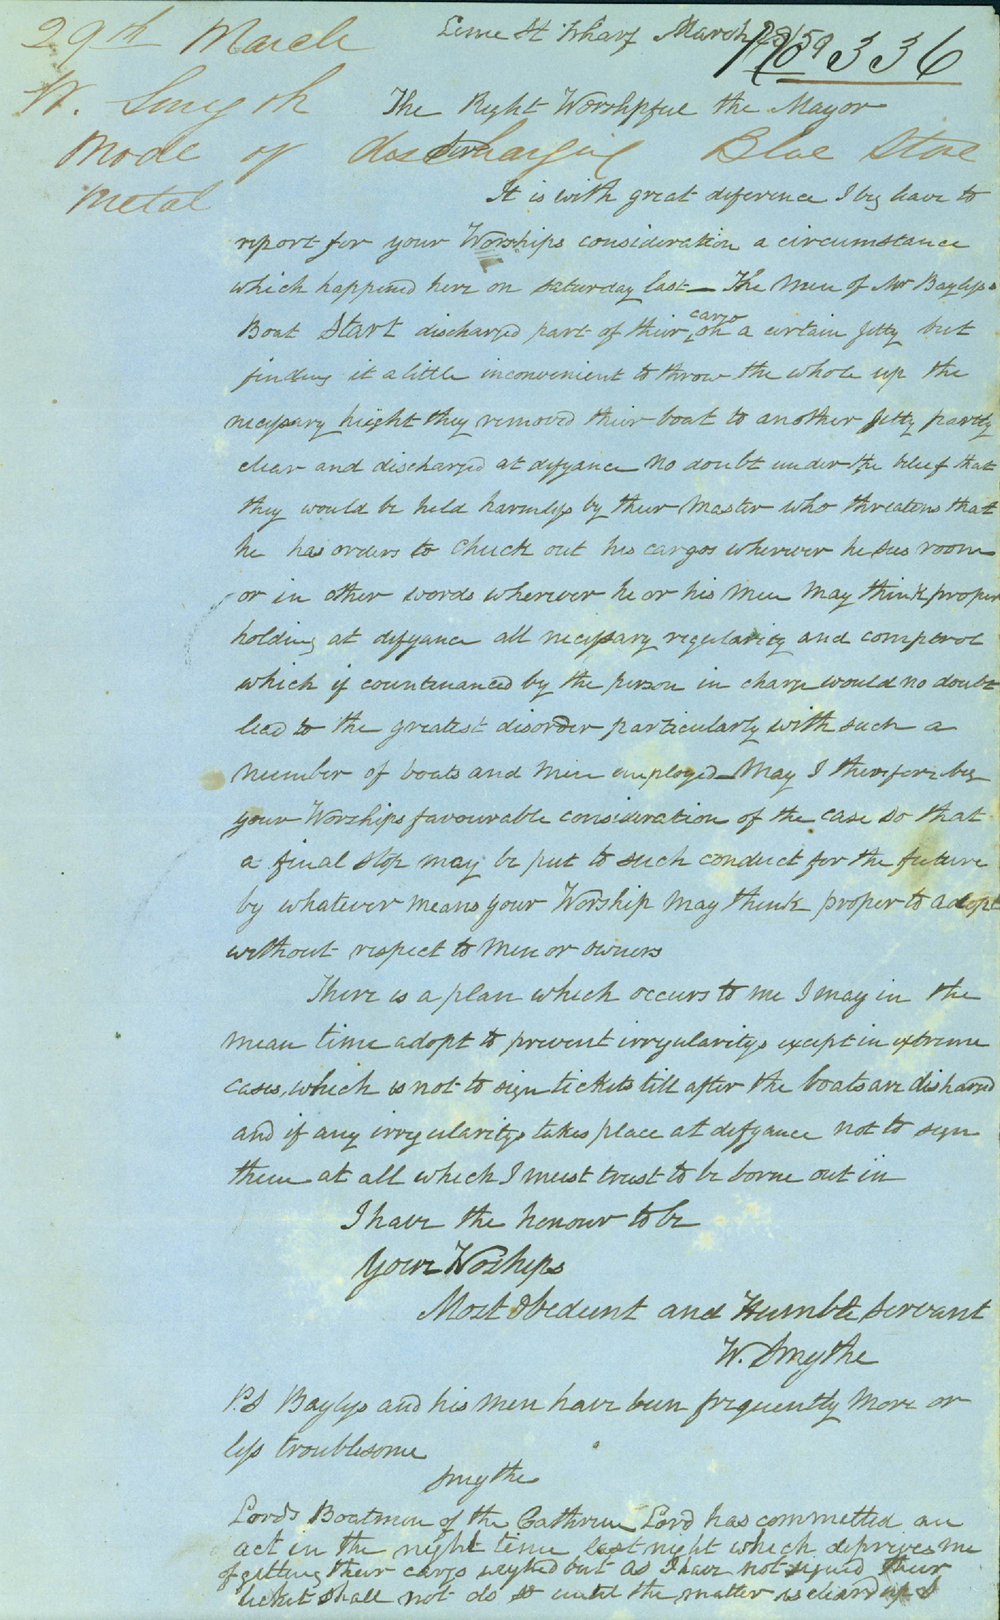 29th March
Lime St Wharf March 28/59
No 336
W. Smyth
The Right Worshpful the Mayor
Mode of discharging Blue Stone
Metal
Sir
It is with great diference I beg leave to
report for your Worships consideration a circumstance
which happened here on saturday last — The Men of Mr Baylys
Boat Start discharged part of their cargo on a certain Jetty but
finding it a little inconvenient to throw the whole up the
necessary height they removed their boat to another Jetty partly
clear and discharged at defyance no doubt under the belief that
they would be held harmless by their Master who threatens that
he has orders to Chuck out his cargos wherever he sees room
or in other words wherever he or his Men May think proper
holding at defyance all necessary regularity and comptrol
which if countenanced by the person in charge would no doubt
lead to the greatest disorder particularly with such a
number of boats and Men employed May I therefore beg
your Worships favourable consideration of the case so that
a final stop may be put to such conduct for the future
by whatever means your Worship May think proper to adopt
without respect to Men or owners
There is a plan which occurs to me I may in the
mean time adopt to prevent irregularitys except in extreme
cases, which is not to sign tickets till after the boats are disharged
and if any irregularitys takes place at defyance not to sign
them at all which I must trust to be borne out in
I have the honour to be
Your Woships
Most obedient and Humble Servant
W. Smythe
P.S Baylys and his men have been frequently More or
less troublesome
Smythe
Lords Boatmen of the Cathrine Lord has committed an
act in the night time last night which deprives me
of getting their cargo weyhed but as I have not signed their
ticket shall not do so until the matter is cleard up